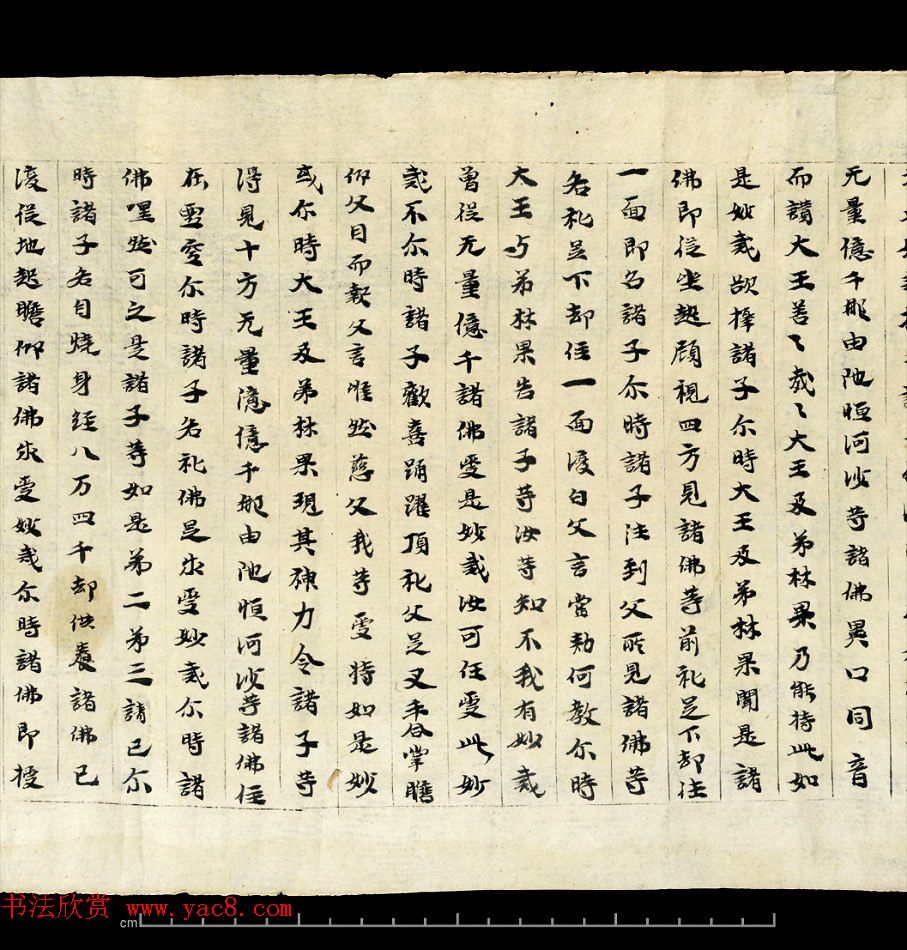 无量億千那由他恒河沙等諸佛異口同音
而讃大王善〻哉〻大王及弟林果乃能持此如
是妙戒欲擇諸子尒時大王及弟林果聞是諸
佛即從坐起顧視四方見諸佛等前礼足下却住
一面即名諸子尒時諸子往到父所見諸佛等
各礼足下却住一面復白父言當勑何教尒時
大王与弟林果告諸子等汝等知不我有妙戒
曾從无量億千諸佛受是妙戒汝可任受此妙
戒不尒時諸子歡喜踊躍頂礼父足叉手合掌瞻
仰父目而報父言唯然慈父我等受持如是妙
戒尒時大王及弟林果現其神力令諸子等
得見十方无量億億千那由他恒河沙等諸佛住
在虚空尒時諸子各礼佛足求受妙戒尒時諸
佛嘿然可之是諸子等如是弟二弟三請已尒
時諸子各自燒身經八万四千却供養諸佛已
復從地起瞻仰諸佛求受妙戒尒時諸佛即授
书法欣赏 www.yac8.com
cm